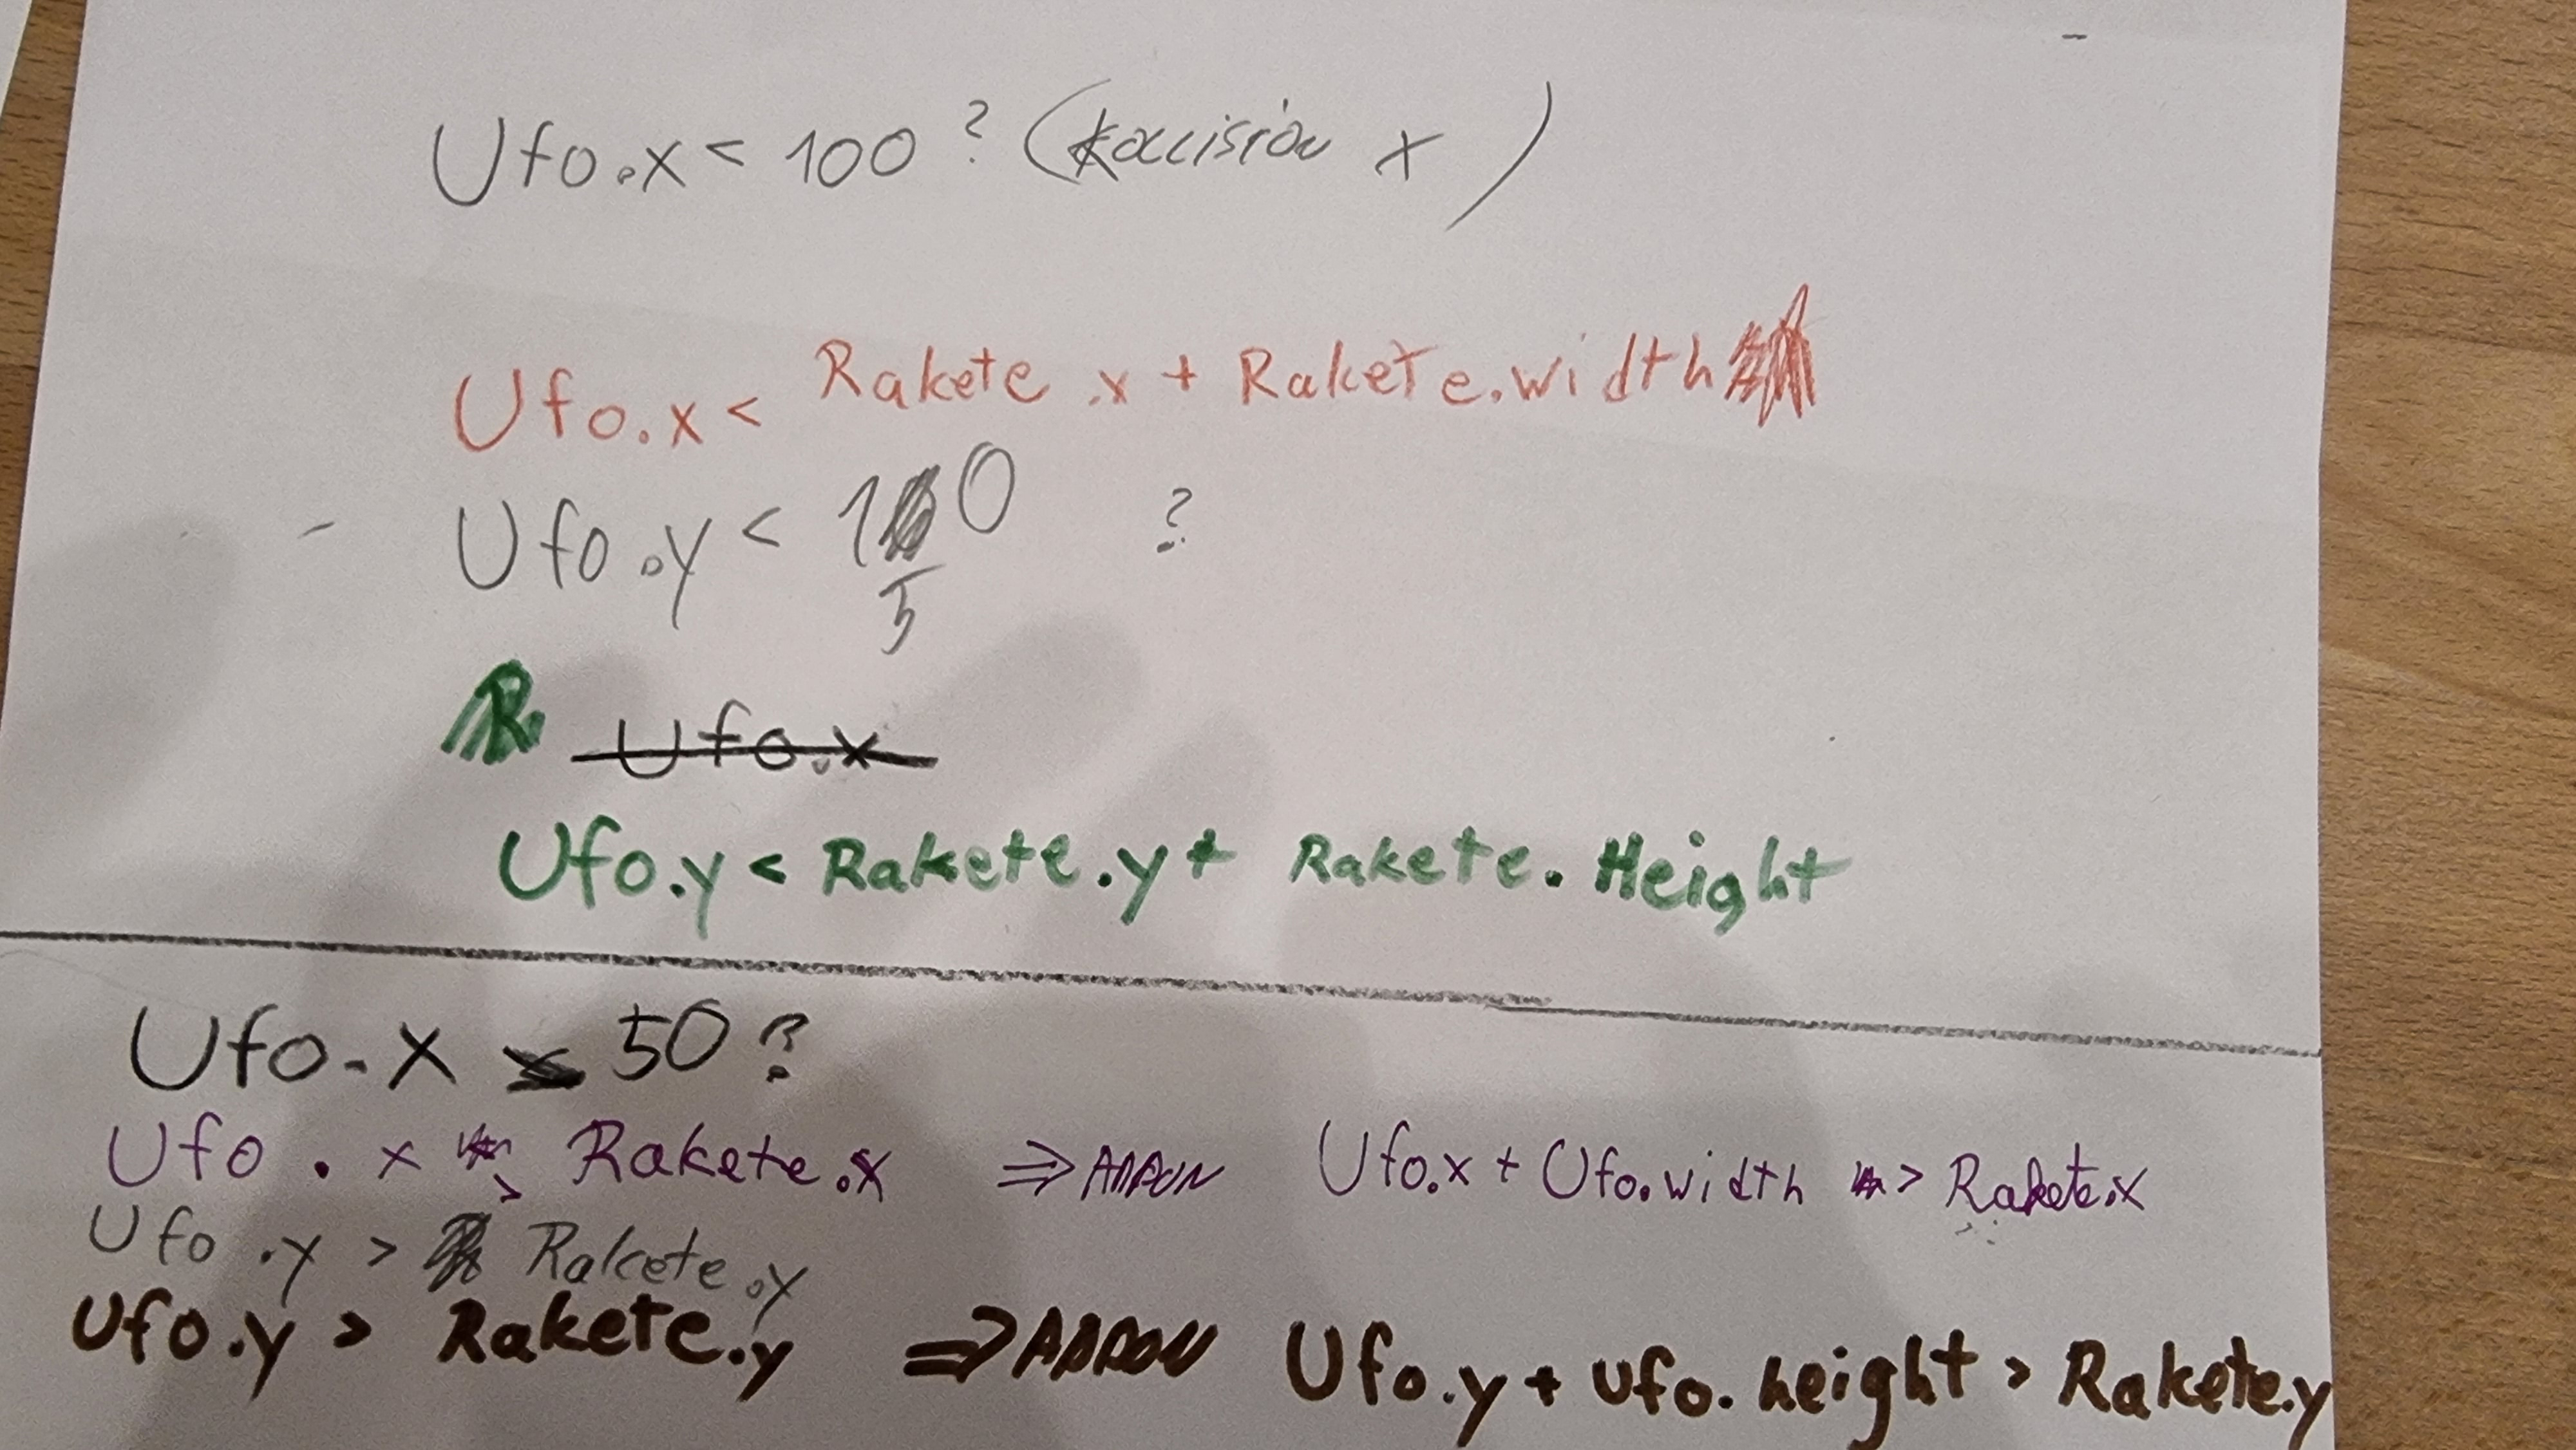 Ufo.x < 100 ? (Kollision x )
Ufo.x < Rakete .x + Rakete.width
Ufo.y < 150 ?
R
Ufo.x
Ufo.y < Rakete.y + Rakete. Height
Ufo.x 50 ?
Ufo . x > Rakete.x ⇒ Ufo.x + Ufo.width > Rakete.x
Ufo .y > Rakete.y
Ufo.y > Rakete.y ⇒ Ufo.y + Ufo. height > Rakete.y